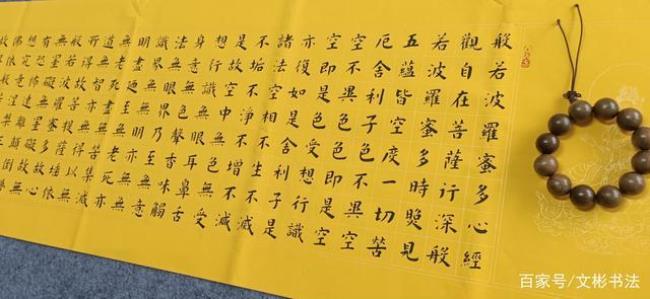 般若波羅蜜多心經
觀自在菩薩行深般
若波羅蜜多時照見
五蘊皆空度一切苦
厄舍利子色不異空
空不異色色即是空
空即是色受想行識
亦復如是舍利子是
諸法空相不生不滅
不垢不淨不增不減
是故空中無色無受
想行識無眼耳鼻舌
身意無色聲香味觸
法無眼界乃至無意
識界無無明亦無無
明盡乃至無老死亦
無老死盡無苦集滅
道無智亦無得以無
所得故菩提薩埵依
般若波羅蜜多故心
無罣礙無罣礙故無
有恐怖遠離顛倒夢
想究竟涅槃三
佛依般
故
百家号/文彬书法